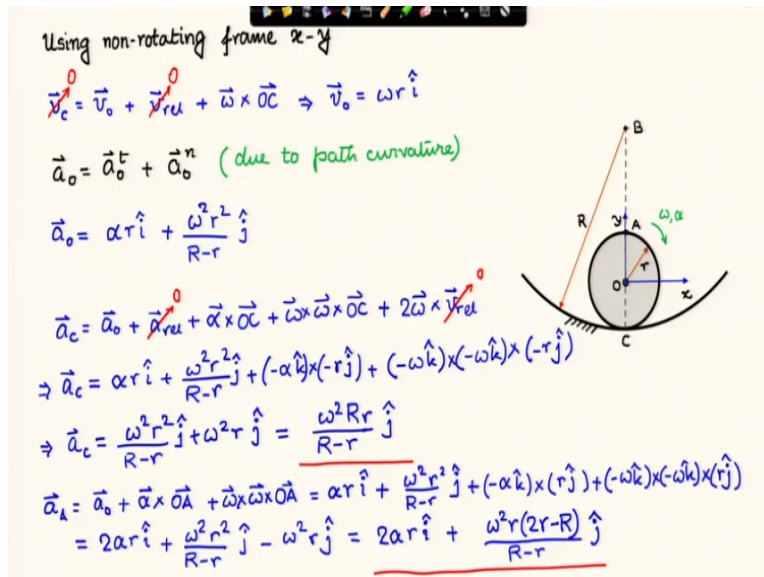 Using non-rotating frame x-y
0 0
v⃗_c = v⃗_o + v⃗_rel + ω⃗ × OC⃗ ⇒ v⃗_o = ωr î
a⃗_o = a⃗_o^t + a⃗_o^n (due to path curvature)
a⃗_o = αr î + ω²r²/(R-r) ĵ
0 0
a⃗_c = a⃗_o + a⃗_rel + α⃗ × OC⃗ + ω⃗ × ω⃗ × OC⃗ + 2ω⃗ × v⃗_rel
⇒ a⃗_c = αr î + ω²r²/(R-r) ĵ + (-αk̂) × (-rĵ) + (-ωk̂) × (-ωk̂) × (-rĵ)
⇒ a⃗_c = ω²r²/(R-r) ĵ + ω²r ĵ = ω²Rr/(R-r) ĵ
a⃗_A = a⃗_o + α⃗ × OA⃗ + ω⃗ × ω⃗ × OA⃗ = αr î + ω²r²/(R-r) ĵ + (-αk̂) × (rĵ) + (-ωk̂) × (-ωk̂) × (rĵ)
= 2αr î + ω²r²/(R-r) ĵ - ω²r ĵ = 2αr î + ω²r(2r-R)/(R-r) ĵ
B
R
y A ω, α
r
O x
C